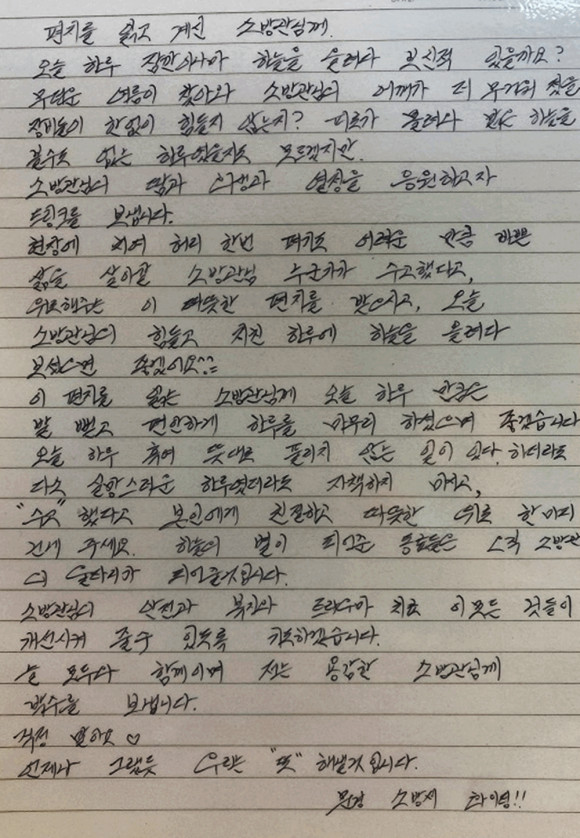 편지를 읽고 계신 소방관님께.
오늘 하루 잠깐이나마 하늘을 올려다 보신적 있을까요?
무더운 여름이 찾아와 소방관님의 어깨가 더 무거워 졌을
장비들이 한없이 힘들지 않는지? 피로가 몰려와 맑은 하늘을
볼수도 없는 하루였을지도 모르겠지만.
소방관님의 땀과 희생과 열정을 응원하고자
드링크를 보냅니다.
현장에 치여 허리 한번 펴기도 어려운 만큼 바쁜
삶을 살아갈 소방관님 누군가가 수고했다고,
위로해주는 이 따뜻한 편지를 받으시고, 오늘
소방관님의 힘들고 지친 하루에 하늘을 올려다
보셨으면 좋겠어요^^
이 편지를 읽는 소방관님께 오늘 하루 만큼은
발 뻗고 편안하게 하루를 마무리 하셨으며 좋겠습니다
오늘 하루 혹여 뜻대로 풀리지 않는 일이 있다 하더라도
다소 실망스러운 하루였더라도 자책하지 마시고,
"수고" 했다고 본인에게 친절하고 따뜻한 위로 한마디
건네 주세요. 하늘의 별이 되어준 동료들은 오직 소방관
의 울타리가 되어줄것입니다.
소방관님의 안전과 복지와 트라우마 치료 이모든 것들이
개선시켜 줄수 있도록 기도하겠습니다.
늘 모두다 함께이며 저는 용감한 소방관님께
박수를 보냅니다.
걱정 말아요 ♡
언제나 그랬듯 우리는 "또" 해낼것입니다.
문경 소방서 화이팅!!